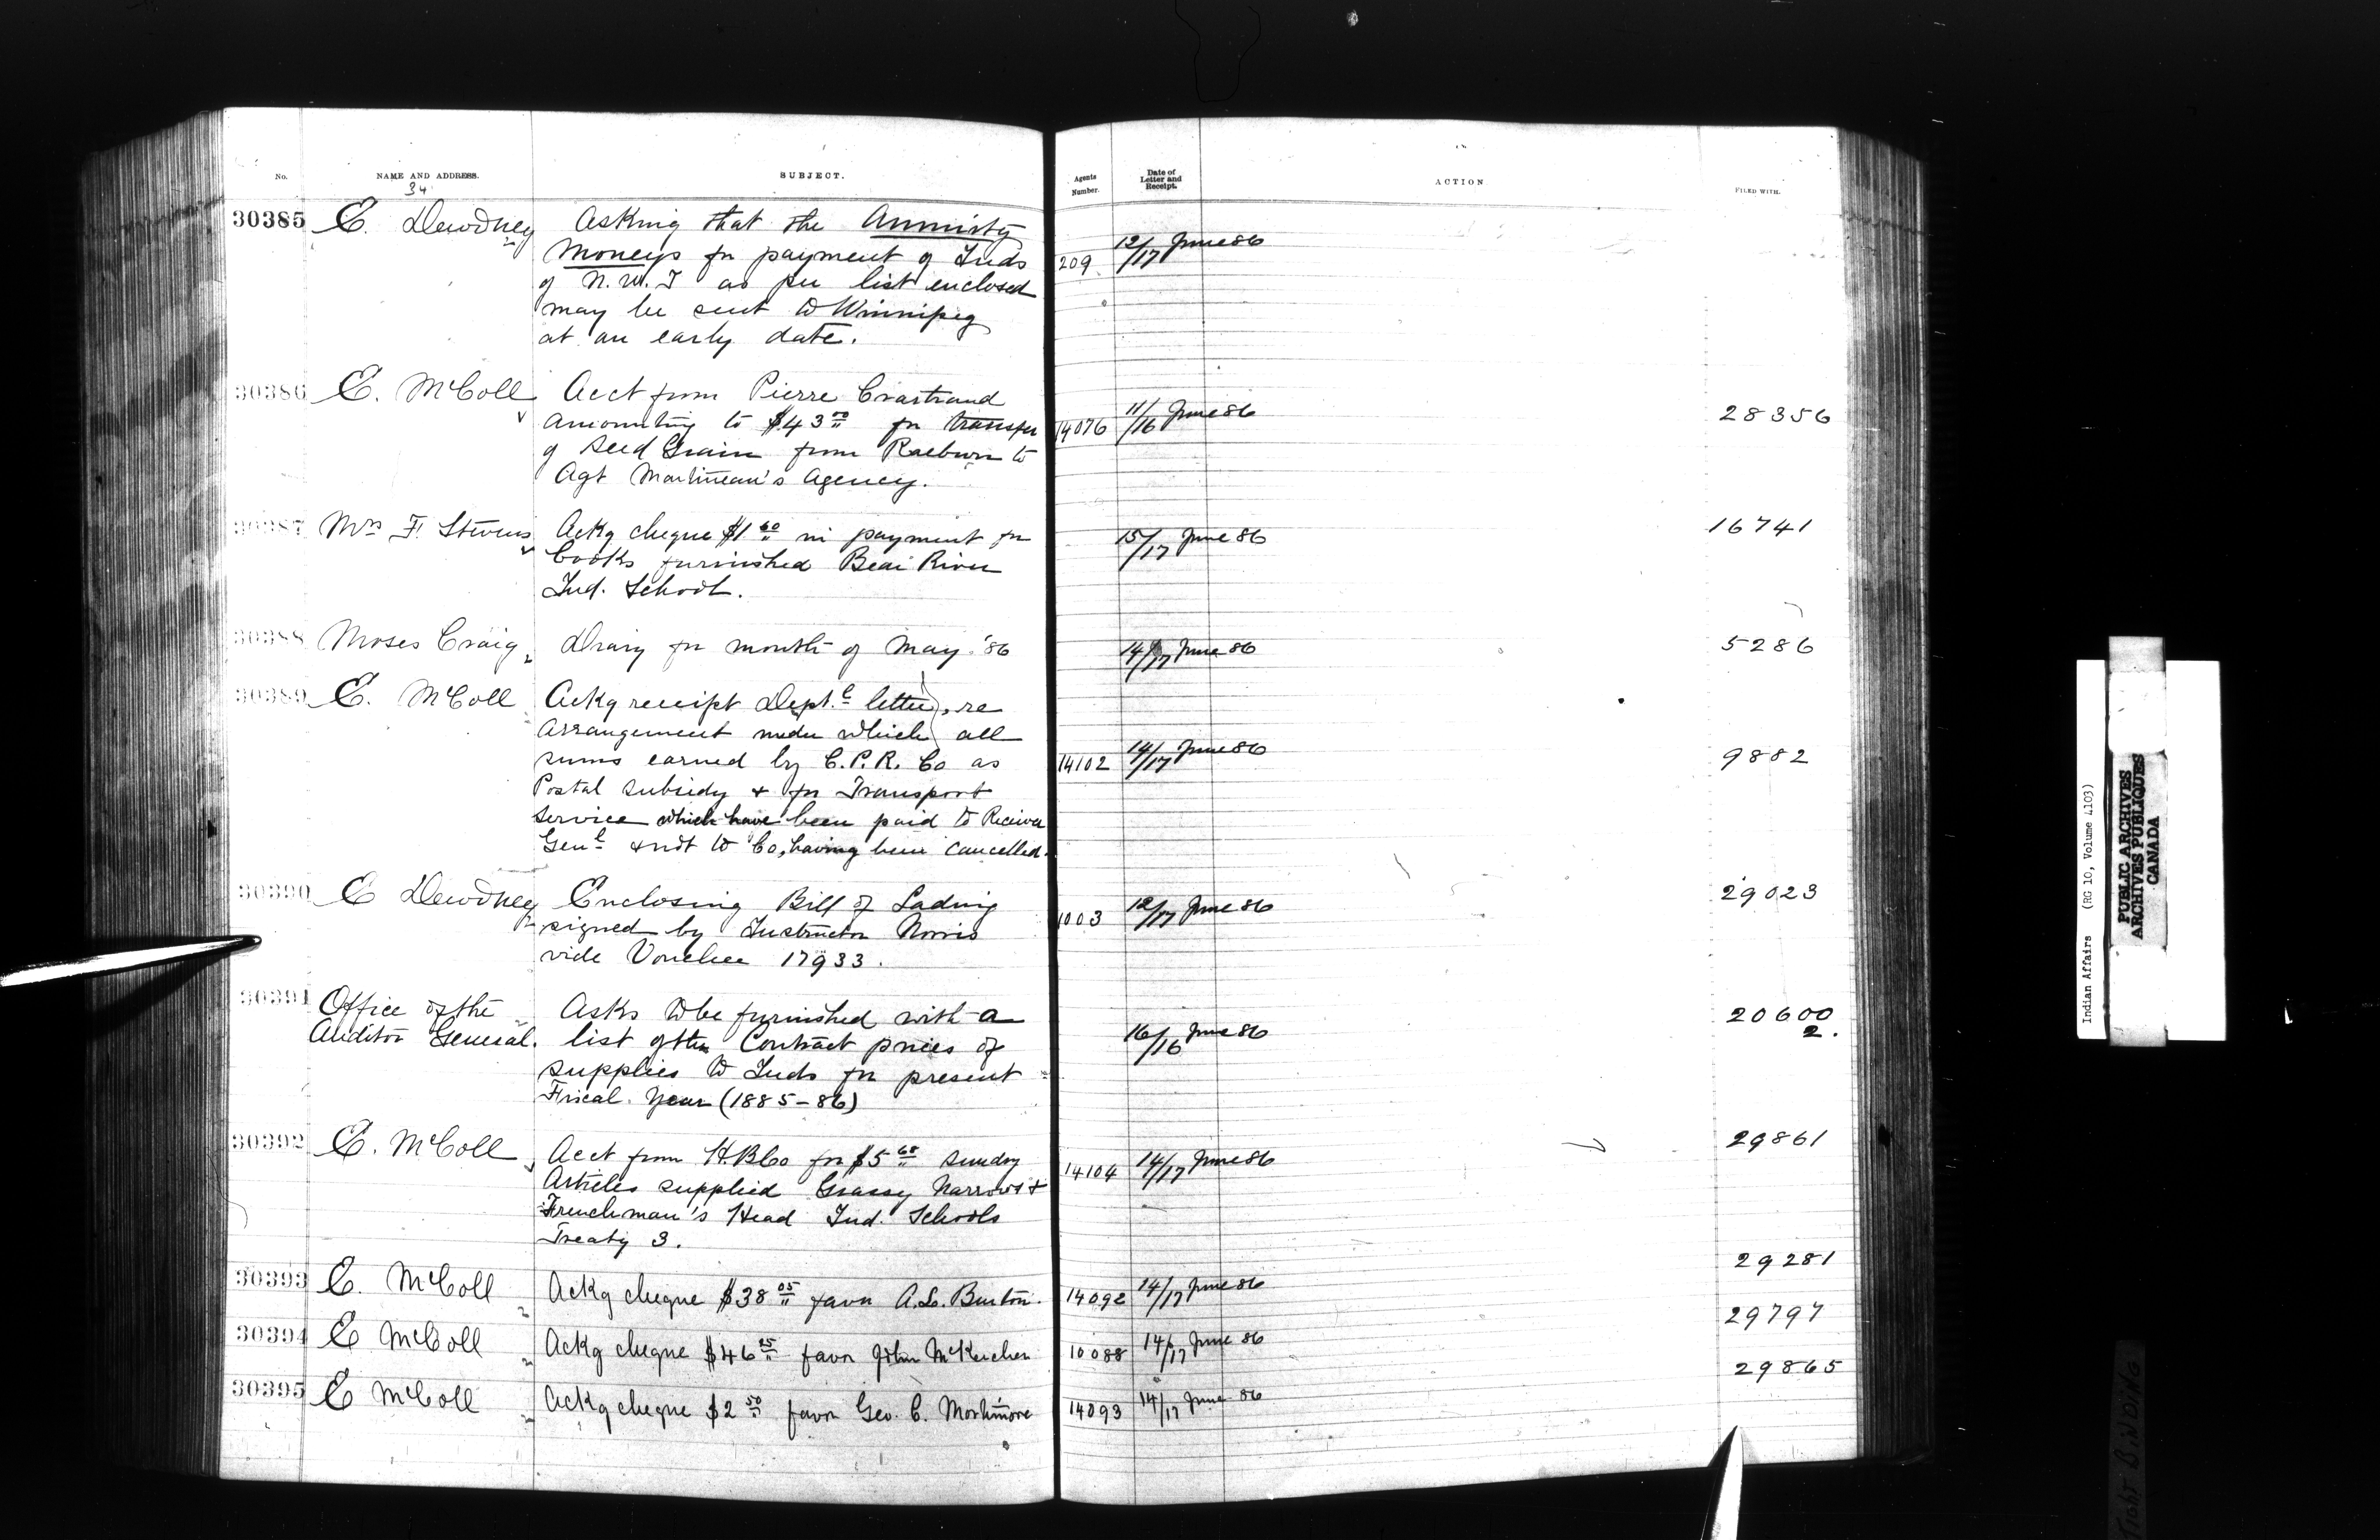 No. NAME AND ADDRESS. SUBJECT. Agents Number. Date of Letter and Receipt. ACTION FILED WITH.
34
30385 E. Dewdney Asking that the Annuity
Moneys for payment of Inds 209 12/17 June 86
of N.W.T as per list enclosed
may be sent to Winnipeg
at an early date.
30386 E. McColl Acct from Pierre
amounting to $43 00 for transfer 14076 11/16 June 86 28356
of Seed Grain from Raeburn to
Agt Martineau's Agency.
30387 Mrs F. Stevens Ackg cheque $1 60 in payment for 15/17 June 86 16741
books furnished Bear River
Ind. School.
30388 Moses Craig Diary for month of May '86 14/17 June 86 5286
30389 E. McColl Ackg receipt Dept.l letter, re
arrangement under which all
sums earned by C.P.R. Co as 14102 14/17 June 86 9882
Postal subsidy & for Transport
service which have been paid to Receiver
Genl & not to Co, having been cancelled.
30390 E Dewdney Enclosing Bill of Lading 1003 12/17 June 86 29023
signed by Instructor Norris
vide Voucher 17933.
30391 Office of the Asks to be furnished with a 20600
Auditor General. list of the Contract prices of 16/16 June 86 2.
supplies to Inds for present
Fiscal Year (1885-86)
30392 E. McColl Acct from H.B.Co for $5 68 sundry 14104 14/17 June 86 29861
Articles supplied Grassy Narrows &
Frenchman's Head Ind. Schools
Treaty 3.
30393 E. McColl Ackg cheque $38 05 favor A.L. Burton. 14092 14/17 June 86 29281
30394 E McColl Ackg cheque $46 25 favor John McKercher 10088 14/17 June 86 29797
30395 E McColl Ackg cheque $2 50 favor Geo. C. Mortimore 14093 14/17 June 86 29865
Indian Affairs (RG 10, Volume 4103)
PUBLIC ARCHIVES
ARCHIVES PUBLIQUES
CANADA
TIGHT BINDING